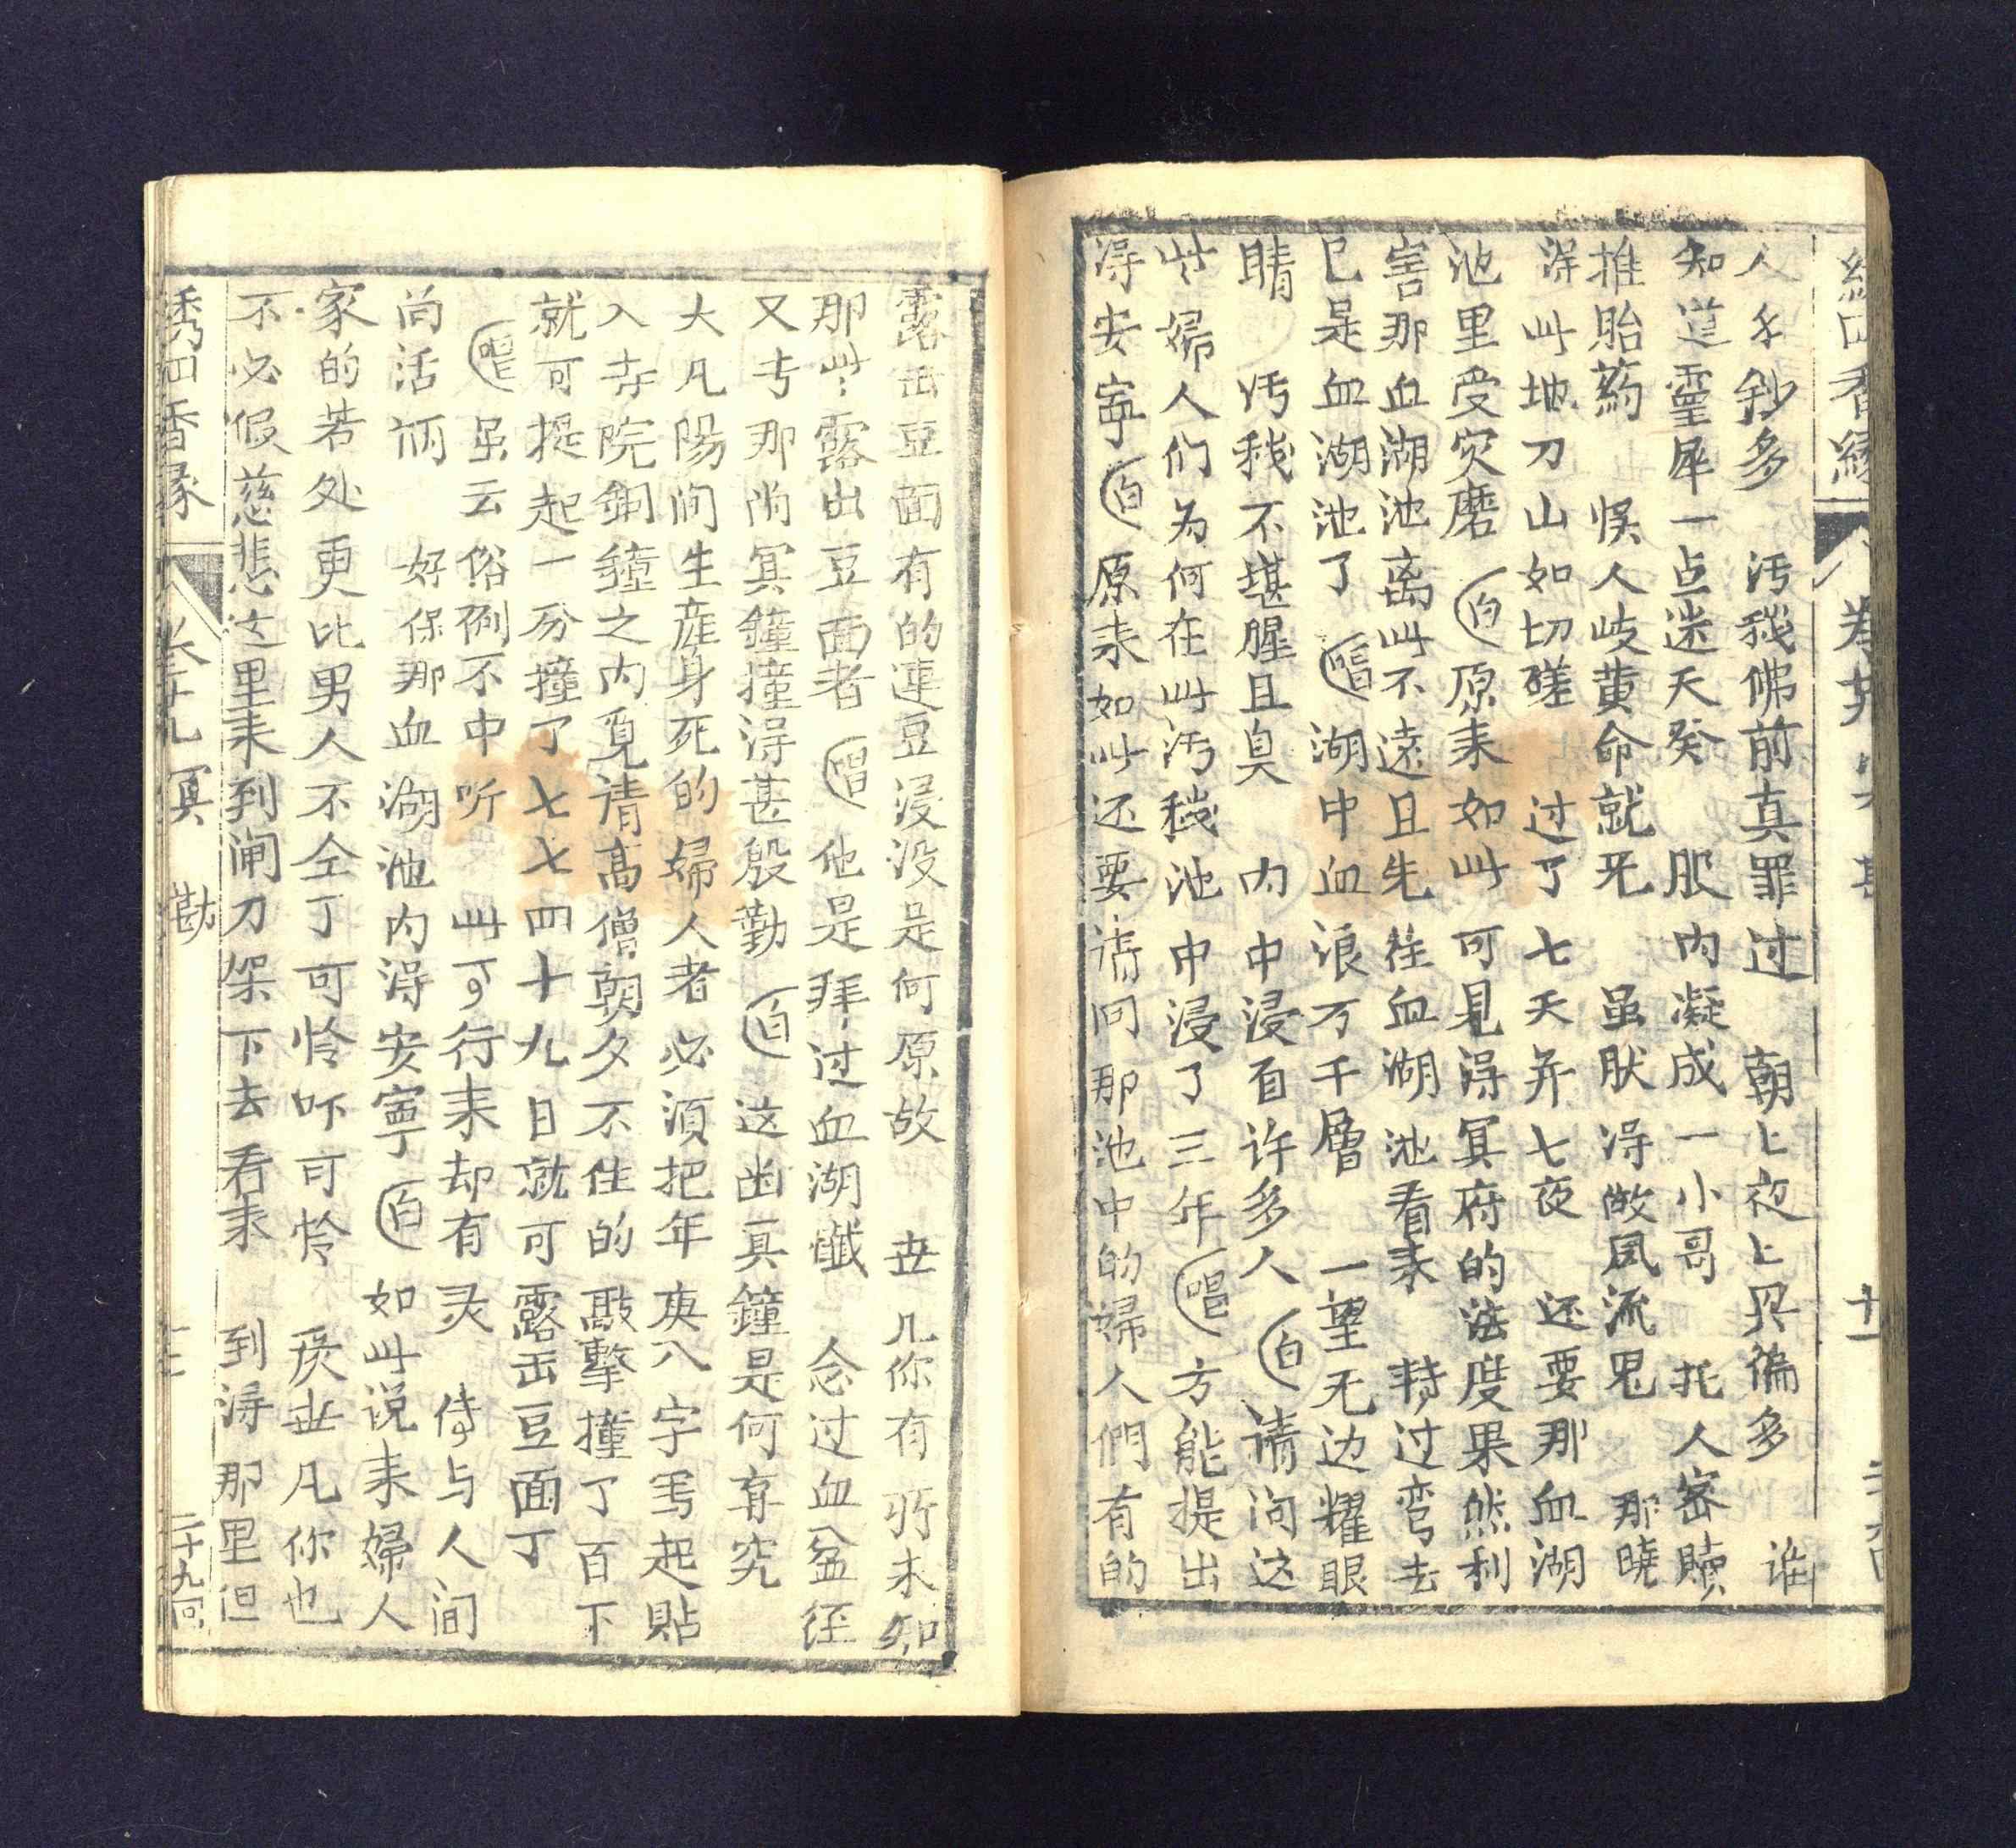 人手鈔多　污秽佛前真罪过　朝上夜上只徧多　谁
知道靈犀一点迷天癸　股内凝成一小哥　托人密贖
推胎葯　悮人岐黄命就无　虽肰淂做風流鬼　那曉
淂此地刀山如切磋　过了七天并七夜　还要那血湖
池里受灾磨　白　原耒如此可見淂冥府的法度果然利
害那血湖池离此不遠且先徃血湖池看耒　轉过弯去
已是血湖池了　唱　湖中血浪万千層　一望无边耀眼
睛　污秽不堪腥且臭　内中浸着许多人　白　请问这
些婦人们为何在此污秽池中浸了三年　唱　方能提出
淂安寧　白　原耒如此还要请问那池中的婦人們有的
露出豆面有的連豆浸没是何原故　世几你有所未知
那些露出豆面者　唱　他是拜过血湖懺　念过血盆径
又考那尚冥鐘撞淂甚殷勤　白　这尚冥鐘是何身究
大凡陽间生産身死的婦人者必須把年庚八字写起貼
入寺院銅鐘之内覓请高僧朝夕不住的敲擊撞了百下
就可提起一分撞了七七四十九日就可露出豆面丁
唱　虽云俗例不中听　此可行耒却有灵　传与人间
尚活俩　好保那血湖池内淂安寧　白　如此说耒婦人
家的苦处更比男人不仝丁可怜吓可怜　庋世凡你也
不必假慈悲这里耒到闸刀架下去看耒　到淂那里但
绣四香缘　卷十九冥　勘　二十九回